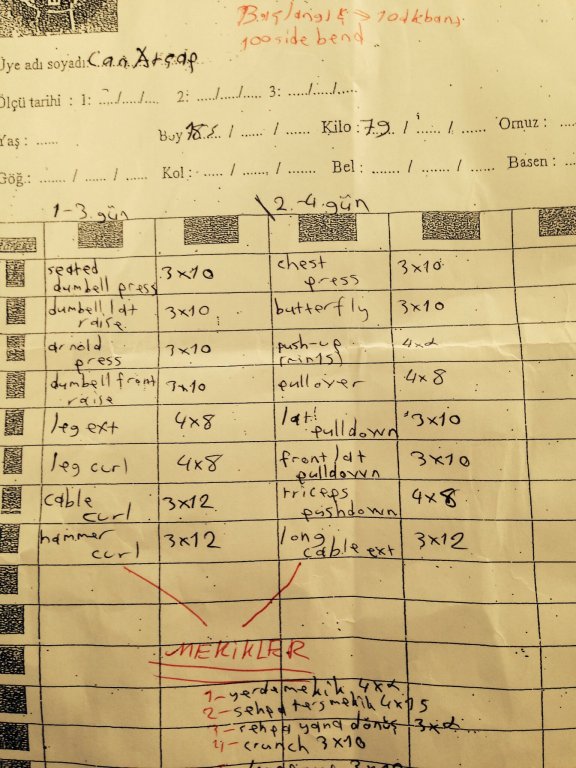 Başlangıç → 10dk bant
100 side bend
Üye adı soyadı: Can
Ölçü tarihi : 1: ..../..../.... 2: ..../..../.... 3: ..../..../....
Yaş : ...... Boy 185 / ...... / ...... Kilo : 79 / ...... / ...... Omuz : ....
Göğ.: ...... / ...... / ...... Kol : ...... / ...... / ...... Bel : ...... / ...... / ...... Basen : ....
1-3.gün 2.-4.gün
seated dumbell press 3x10 chest press 3x10
dumbell lat raise 3x10 butterfly 3x10
arnold press 3x10 push-up (min15) 4xα
dumbell front raise 3x10 pullover 4x8
leg ext 4x8 lat pulldown 3x10
leg curl 4x8 front lat pulldown 3x10
cable curl 3x12 triceps pushdown 4x8
hammer curl 3x12 long cable ext 3x12
MEKİKLER
1- yerde mekik 4xα
2- sehpa ters mekik 4x15
3- sehpa yana dönüş 3xα
4- crunch 3x10